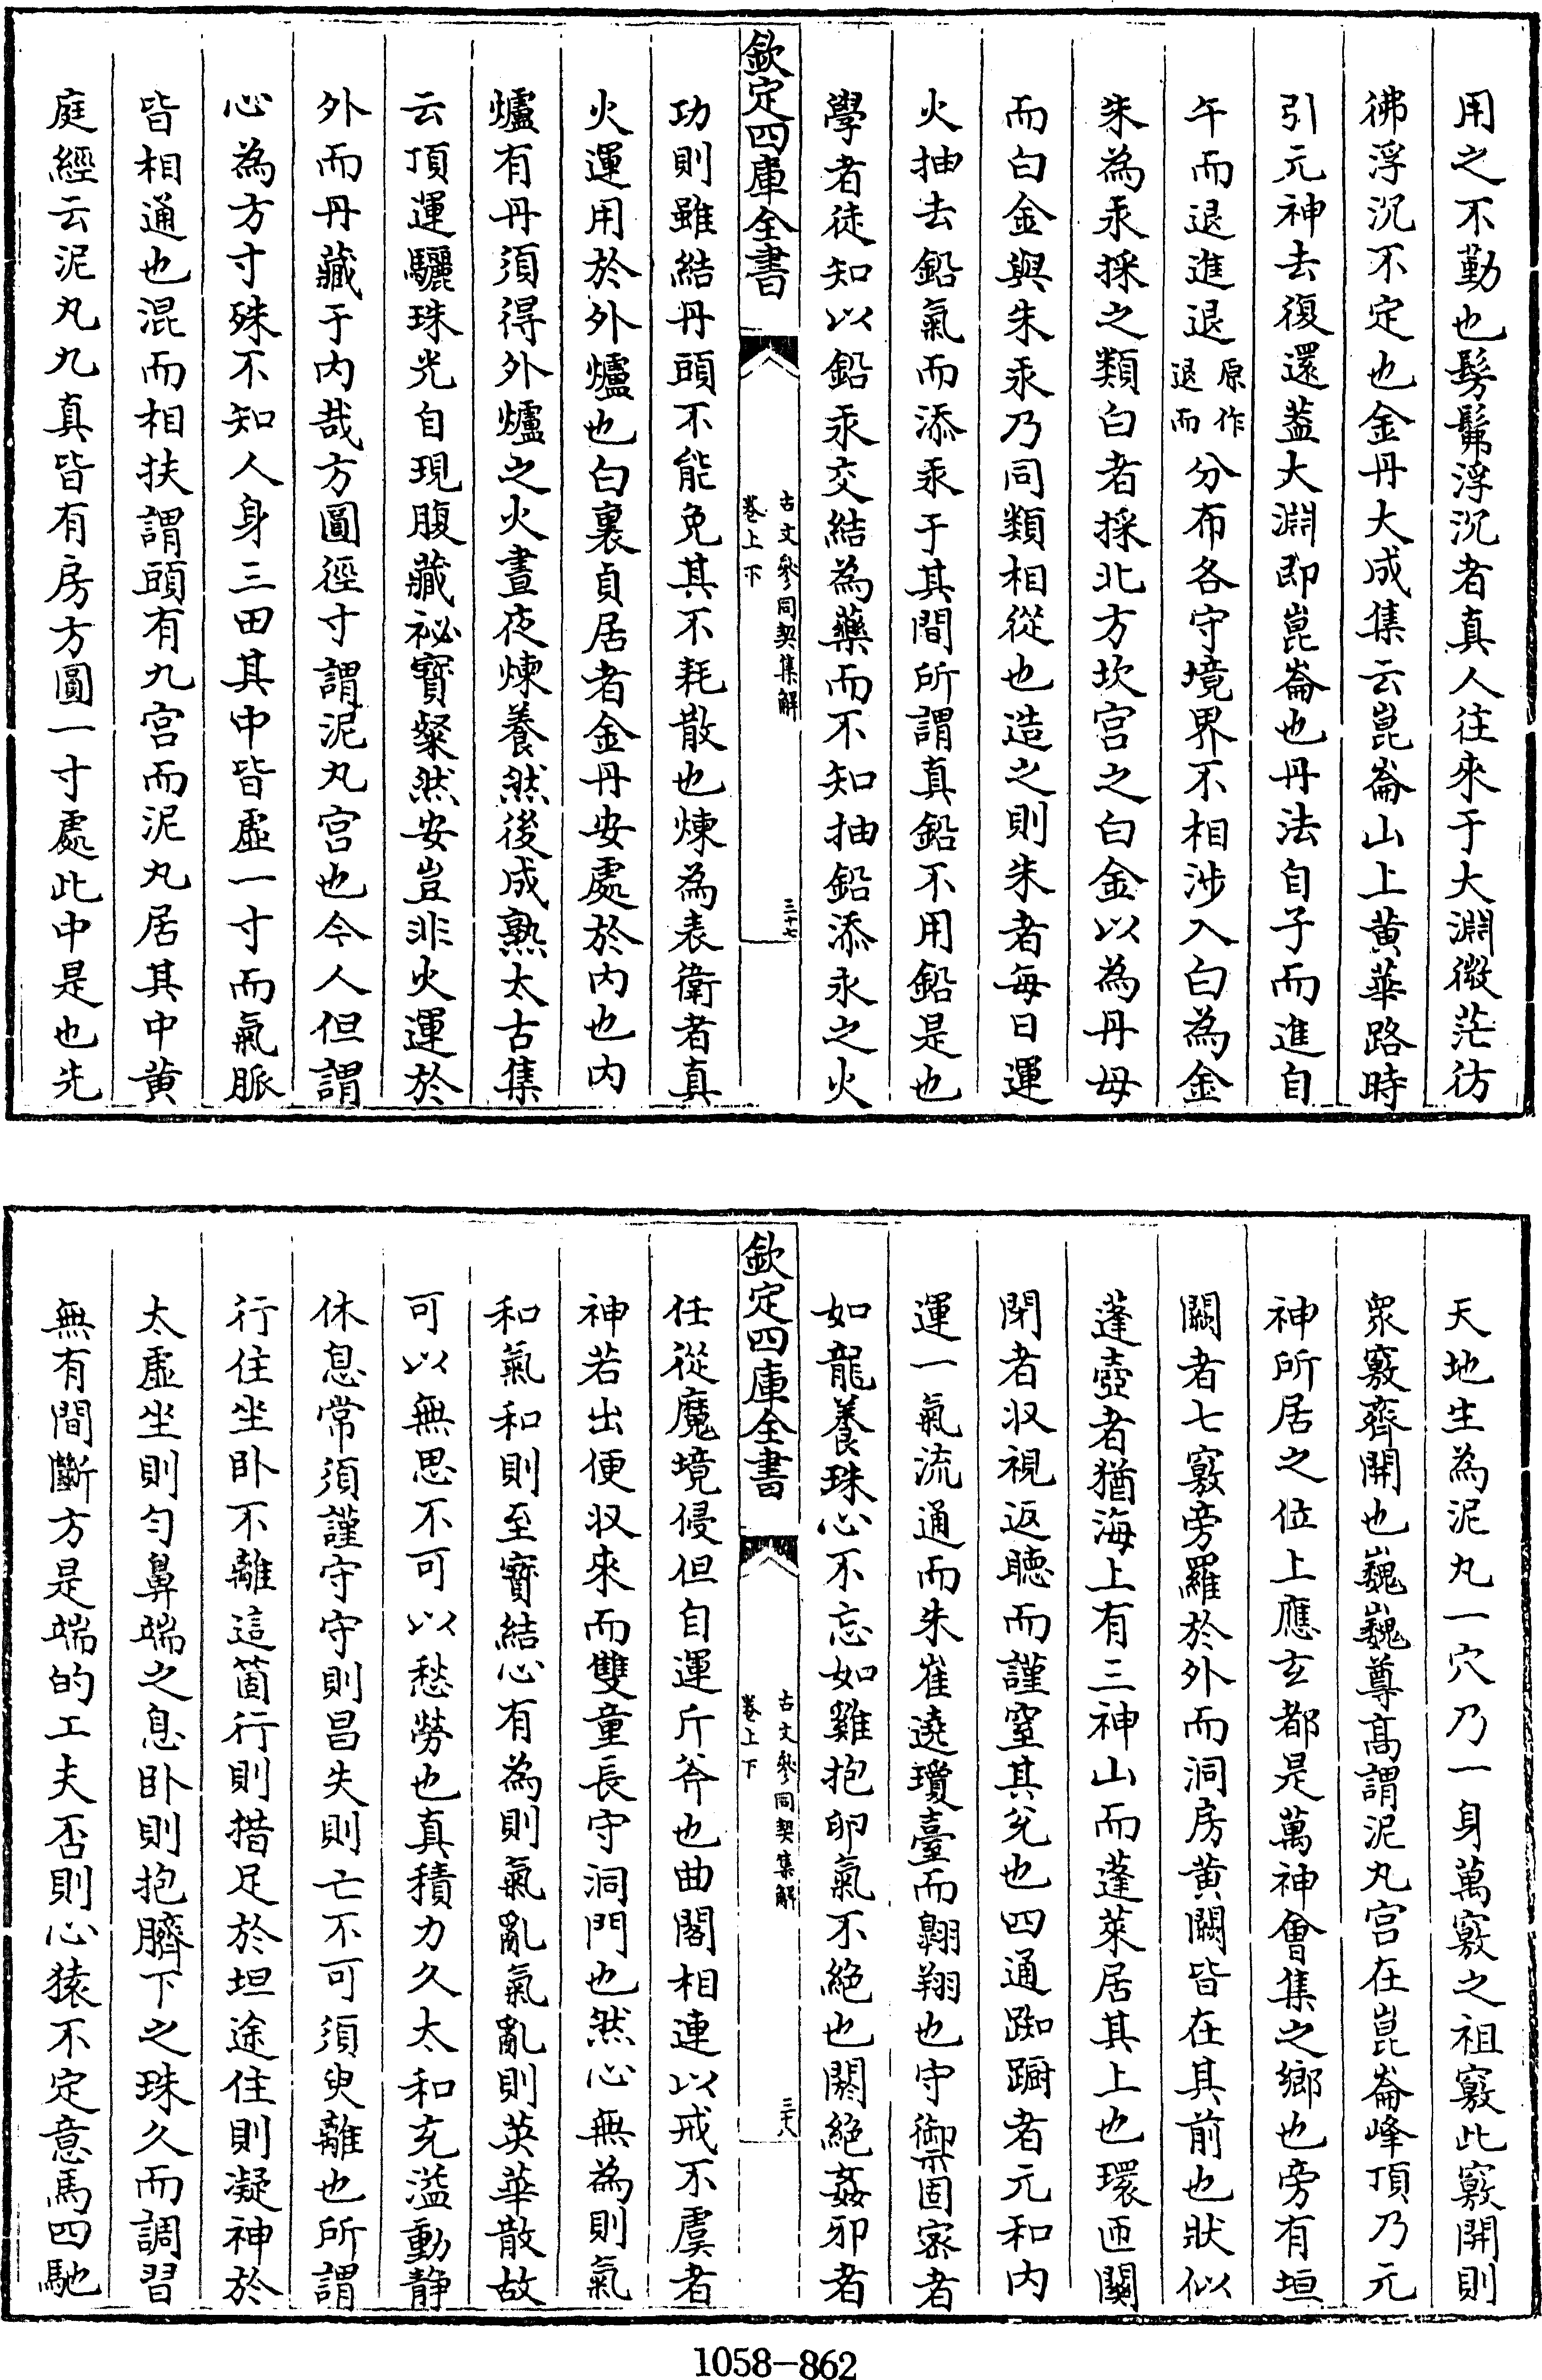 用之不勤也髣髴浮沉者真人往來于大淵微茫彷
彿浮沉不定也金丹大成集云崑崙山上黃華路時
引元神去復還葢大淵即崑崙也丹法自子而進自
午而退進退原作退而分布各守境界不相涉入白為金
朱為汞採之類白者採北方坎宫之白金以為丹母
而白金與朱汞乃同類相從也造之則朱者每日運
火抽去鉛氣而添汞于其間所謂真鉛不用鉛是也
學者徒知以鉛汞交結為藥而不知抽鉛添永之火
欽定四庫全書
古文參同契集解
卷上下
三十七
功則雖結丹頭不能免其不耗散也煉為表衛者真
火運用於外爐也白裏貞居者金丹安處於内也内
爐有丹須得外爐之火晝夜煉養然後成熟太古集
云頂運驪珠光自現腹藏祕寶粲然安豈非火運於
外而丹藏于内哉方圓徑寸謂泥丸宫也今人但謂
心為方寸殊不知人身三田其中皆虛一寸而氣脈
皆相通也混而相扶謂頭有九宫而泥丸居其中黄
庭經云泥丸九真皆有房方圓一寸處此中是也先
天地生為泥丸一穴乃一身萬竅之祖竅此竅開則
衆竅齊開也巍巍尊高謂泥丸宫在崑崙峰頂乃元
神所居之位上應玄都是萬神會集之鄉也旁有垣
闕者七竅旁羅於外而洞房黄闕皆在其前也狀似
蓬壺者猶海上有三神山而蓬萊居其上也環匝關
閉者収視返聽而謹窒其兌也四通踟蹰者元和内
運一氣流通而朱雀遶瓊臺而翺翔也守禦固宻者
如龍養珠心不忘如雞抱卵氣不絶也閼絶姦邪者
欽定四庫全書
古文參同契集解
卷上下
三十八
任從魔境侵但自運斤斧也曲閣相連以戒不虞者
神若出便収來而雙童長守洞門也然心無為則氣
和氣和則至寶結心有為則氣亂氣亂則英華散故
可以無思不可以愁勞也真積力久太和充溢動静
休息常須謹守守則昌失則亡不可須臾離也所謂
行住坐卧不離這箇行則措足於坦途住則凝神於
太虛坐則勻鼻端之息卧則抱臍下之珠久而調習
無有間斷方是端的工夫否則心猿不定意馬四馳
1058-862